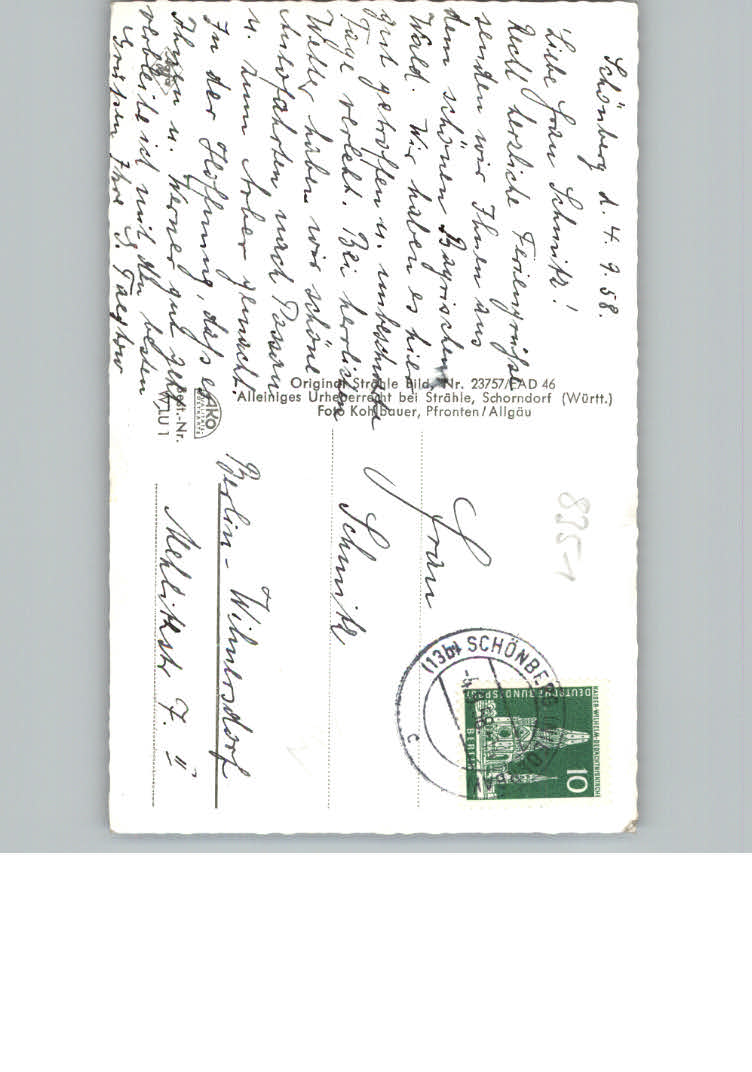 Schönberg d. 4. 9. 58.
Liebe Frau Schmitz!
Recht herzliche Feriengrüße
senden wir Ihnen aus
dem schönen Bayrischen
Wald. Wir haben es hier
gut getroffen u. unbeschwerte
Tage verlebt. Bei herrlichem
Wetter haben wir schöne
Autofahrten nach Passau
u. zum Arber gemacht.
In der Hoffnung, daß es
Ihnen u. Werner gut geht
verbleibe ich mit den besten
Grüßen Ihre
Original Strähle Bild, Nr. 23757/EAD 46
Alleiniges Urheberrecht bei Strähle, Schorndorf (Württ.)
Foto Kohlbauer, Pfronten/Allgäu
AKO
Best.-Nr.
Frau
Schmitz
Berlin-Wilmersdorf
7. II
895-1
(13b) SCHÖNBERG
-4.
c
DEUTSCHE BUNDESPOST
BERLIN
KAISER-WILHELM-GEDÄCHTNISKIRCHE
10